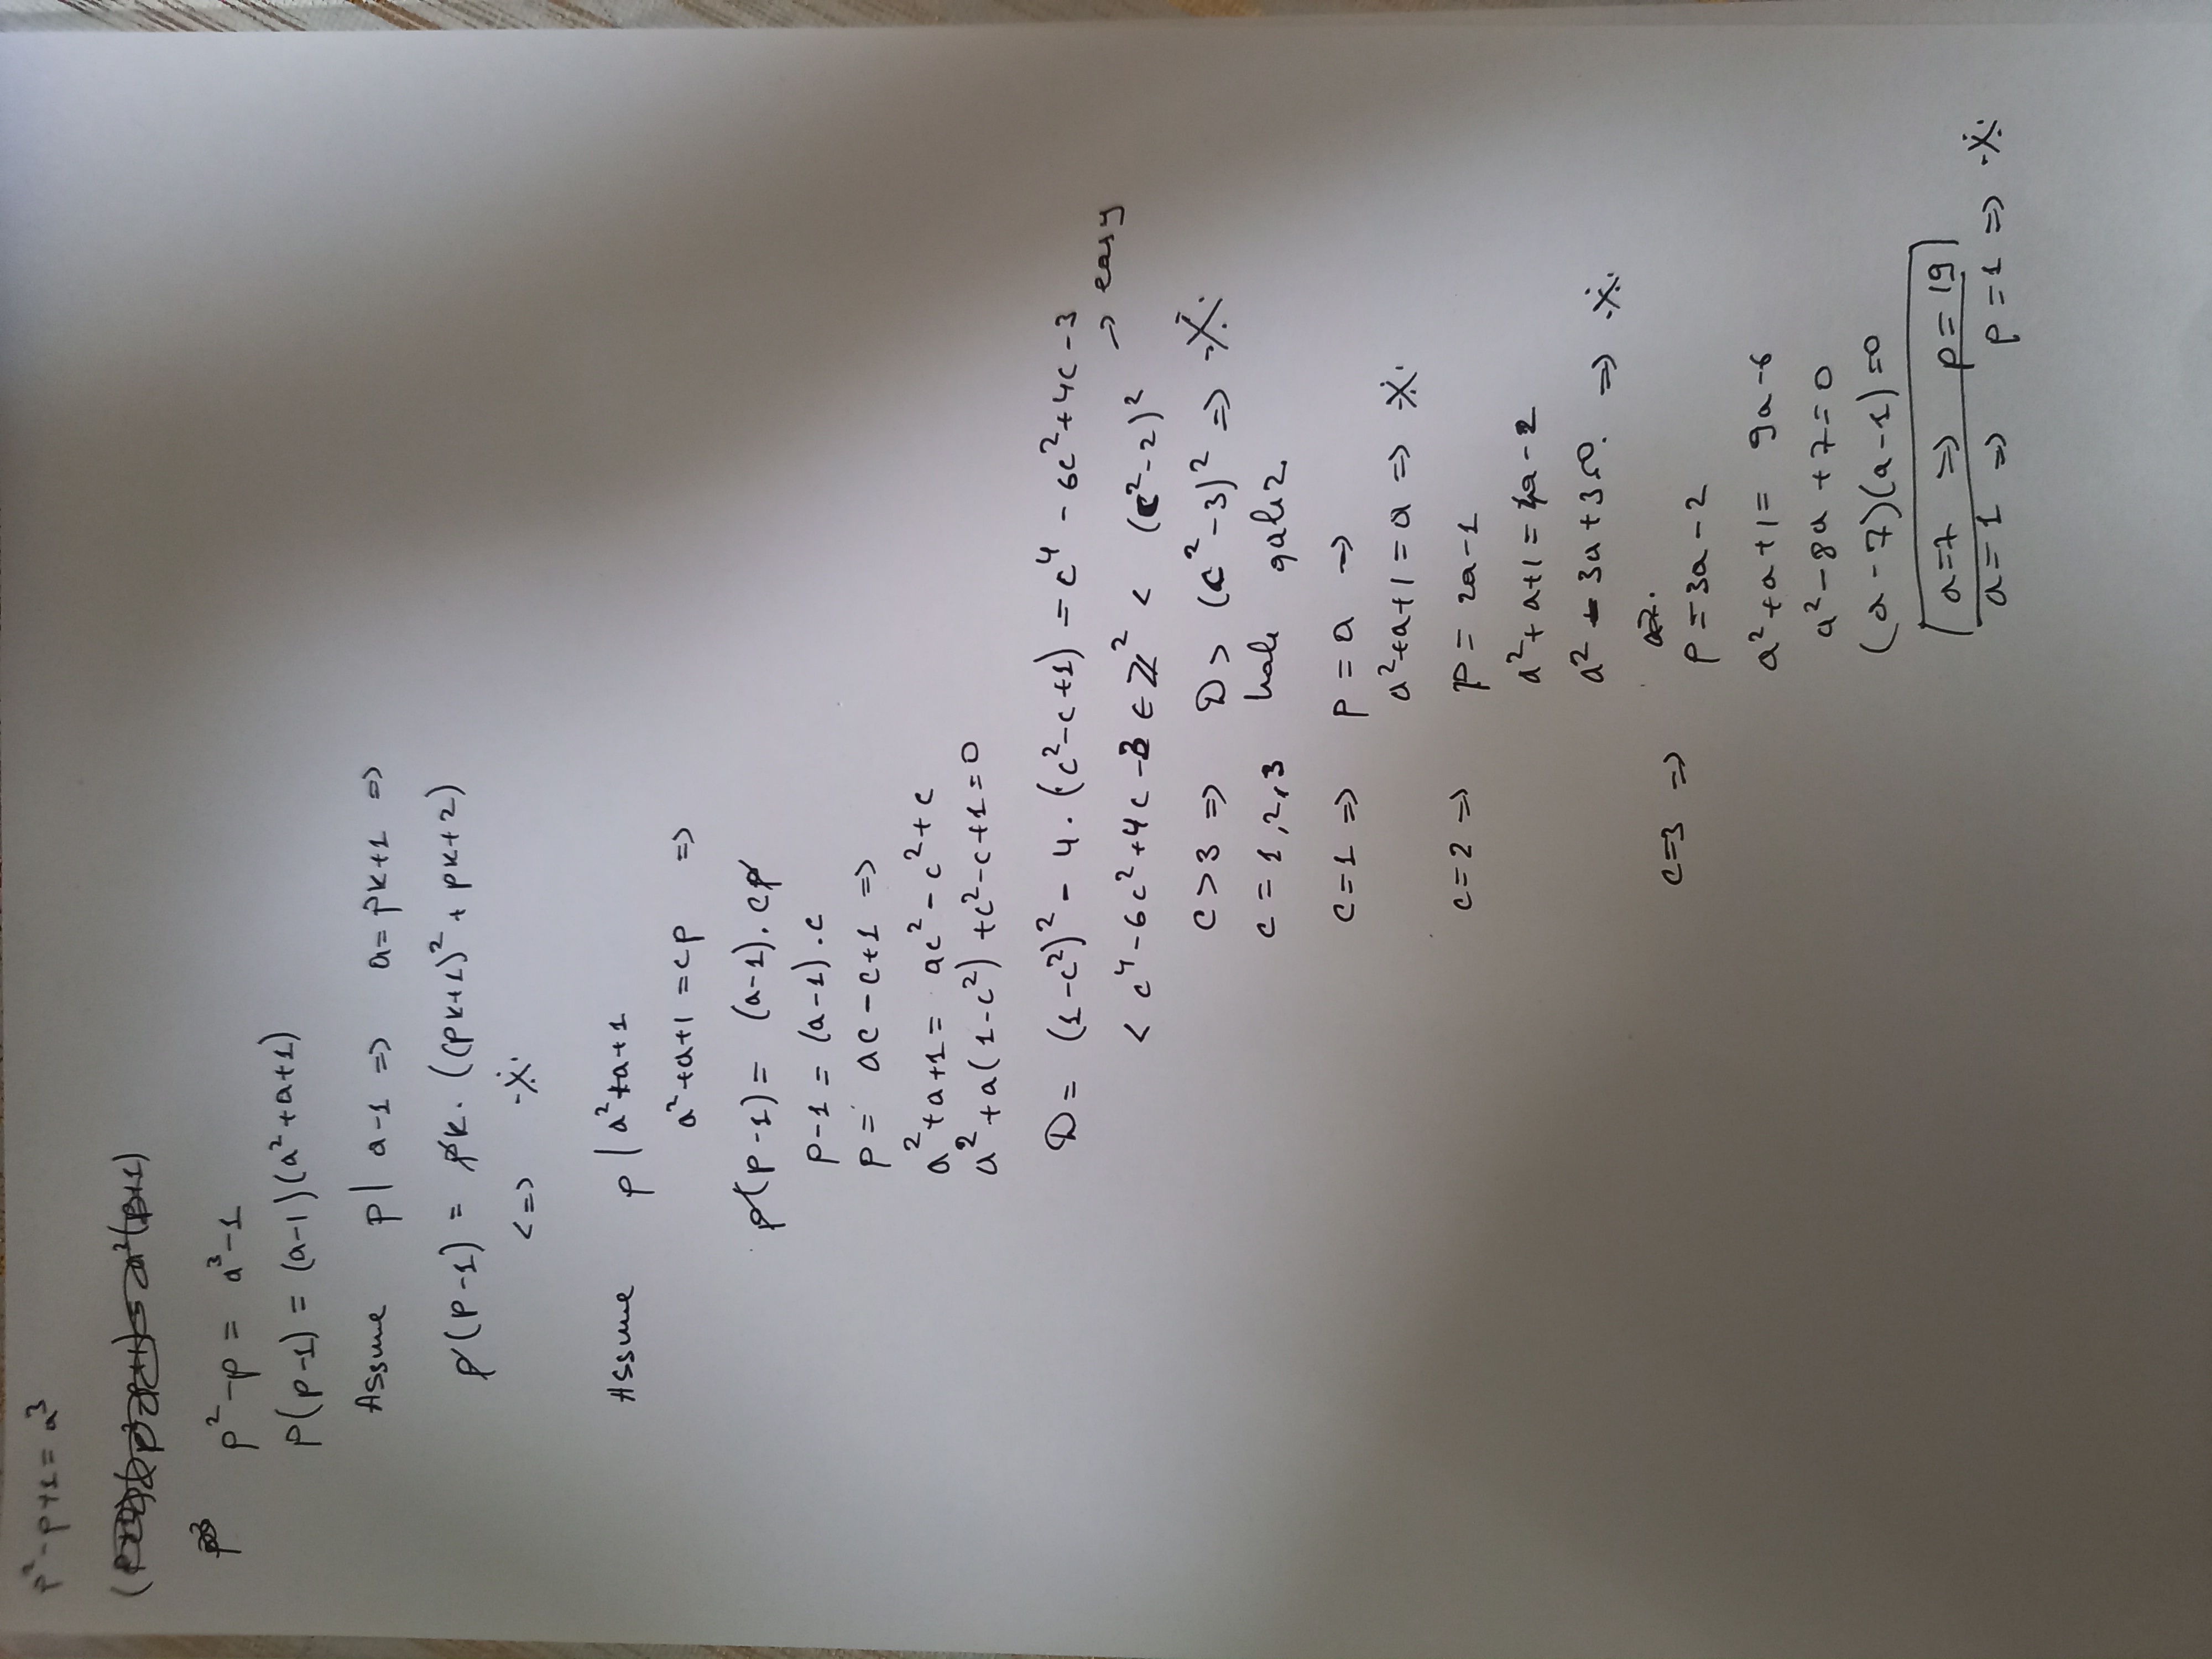 p² - p + 1 = a³
p² - p = a³ - 1
p(p-1) = (a-1)(a²+a+1)
Assume p | a-1 => a = pk+1 =>
p(p-1) = pk. ((pk+1)² + pk+2)
<=> ※
Assume p | a²+a+1
a²+a+1 = cp =>
p(p-1) = (a-1).cp
p-1 = (a-1).c
p = ac-c+1 =>
a²+a+1 = ac²-c²+c
a²+a(1-c²)+c²-c+1=0
D = (1-c²)² - 4.(c²-c+1) = c⁴ - 6c²+4c-3
< c⁴-6c²+4c-3 ∈ ℤ² < (c²-2)² → easy
c>3 => D > (c²-3)² => ※
c = 1,2,3 hale galiz
c=1 => p = a →
a²+a+1 = a => ※
c=2 => p = 2a-1
a²+a+1 = 4a-2
a² - 3a+3=0. => ※
c=3 => p = 3a-2
a²+a+1 = 9a-6
a²-8a+7=0
(a-7)(a-1)=0
a=7 => p=19
a=1 => p=1 => ※